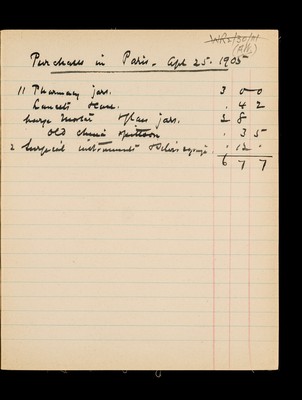 WA/30/
Purchases in Paris. Apl 25. 1905
11 Pharmacy jars. 3 0 0
Lancet case. . 4 2
Large Mortar Glass jars. 2 8
Old china spittoon . 3 5
2 Surgical instruments syringe. . 12 .
6 7 7